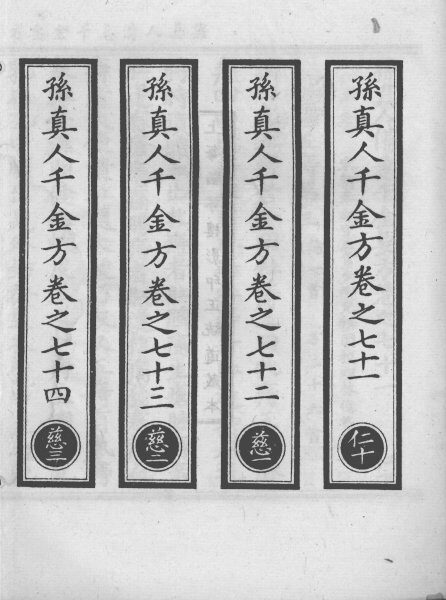 孫真人千金方卷之七十一
仁十
孫真人千金方卷之七十二
慈一
孫真人千金方卷之七十三
慈二
孫真人千金方卷之七十四
慈三